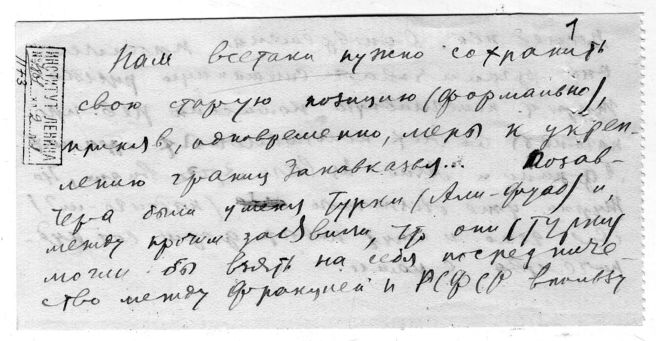 1
Нам всетаки нужно сохранить
свою старую позицию (формально),
приняв, одновременно, меры к укреп-
лению границ Закавказья... Позав-
чера были у меня Турки (Али-Фуад) и
между прочим заявили, что они (Турки)
могли бы взять на себя посредниче
ство между Францией и РСФСР в пользу
ИНСТИТУТ ЛЕНИНА